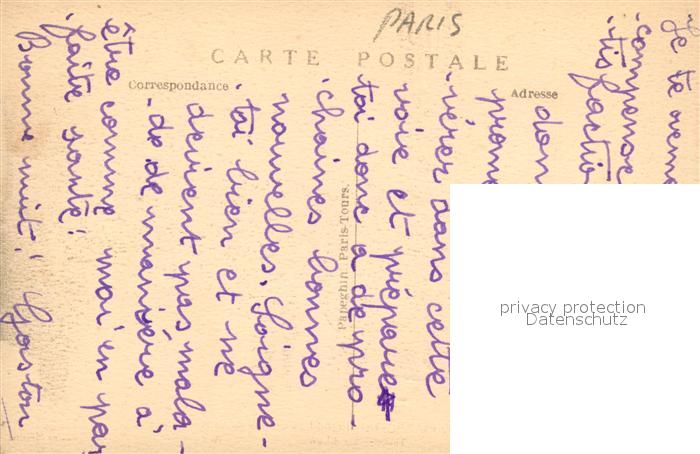 PARIS
CARTE POSTALE
Correspondance
Adresse
Papeghin Paris-Tours.
Je te reme
compense
tisfactio
don
prome
-vérer dans cette
voie et prépare
toi donc a de pro-
chaines bonnes
nouvelles. Soigne-
toi bien et ne
devient pas mala-
-de de manière à
être comme moi en par
faite santé!
Bonne nuit! Gaston
privacy protection
Datenschutz